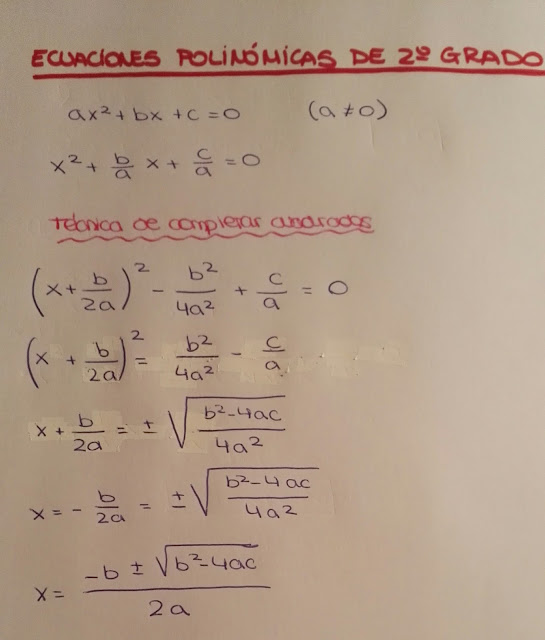 ECUACIONES POLINÓMICAS DE 2º GRADO
ax² + bx + c = 0 (a ≠ 0)
x² + b/a x + c/a = 0
Técnica de completar cuadrados
(x + b/2a)² - b²/4a² + c/a = 0
(x + b/2a)² = b²/4a² - c/a
x + b/2a = ± √((b²-4ac)/4a²)
x = - b/2a = ± √((b²-4ac)/4a²)
x = (-b ± √(b²-4ac))/2a